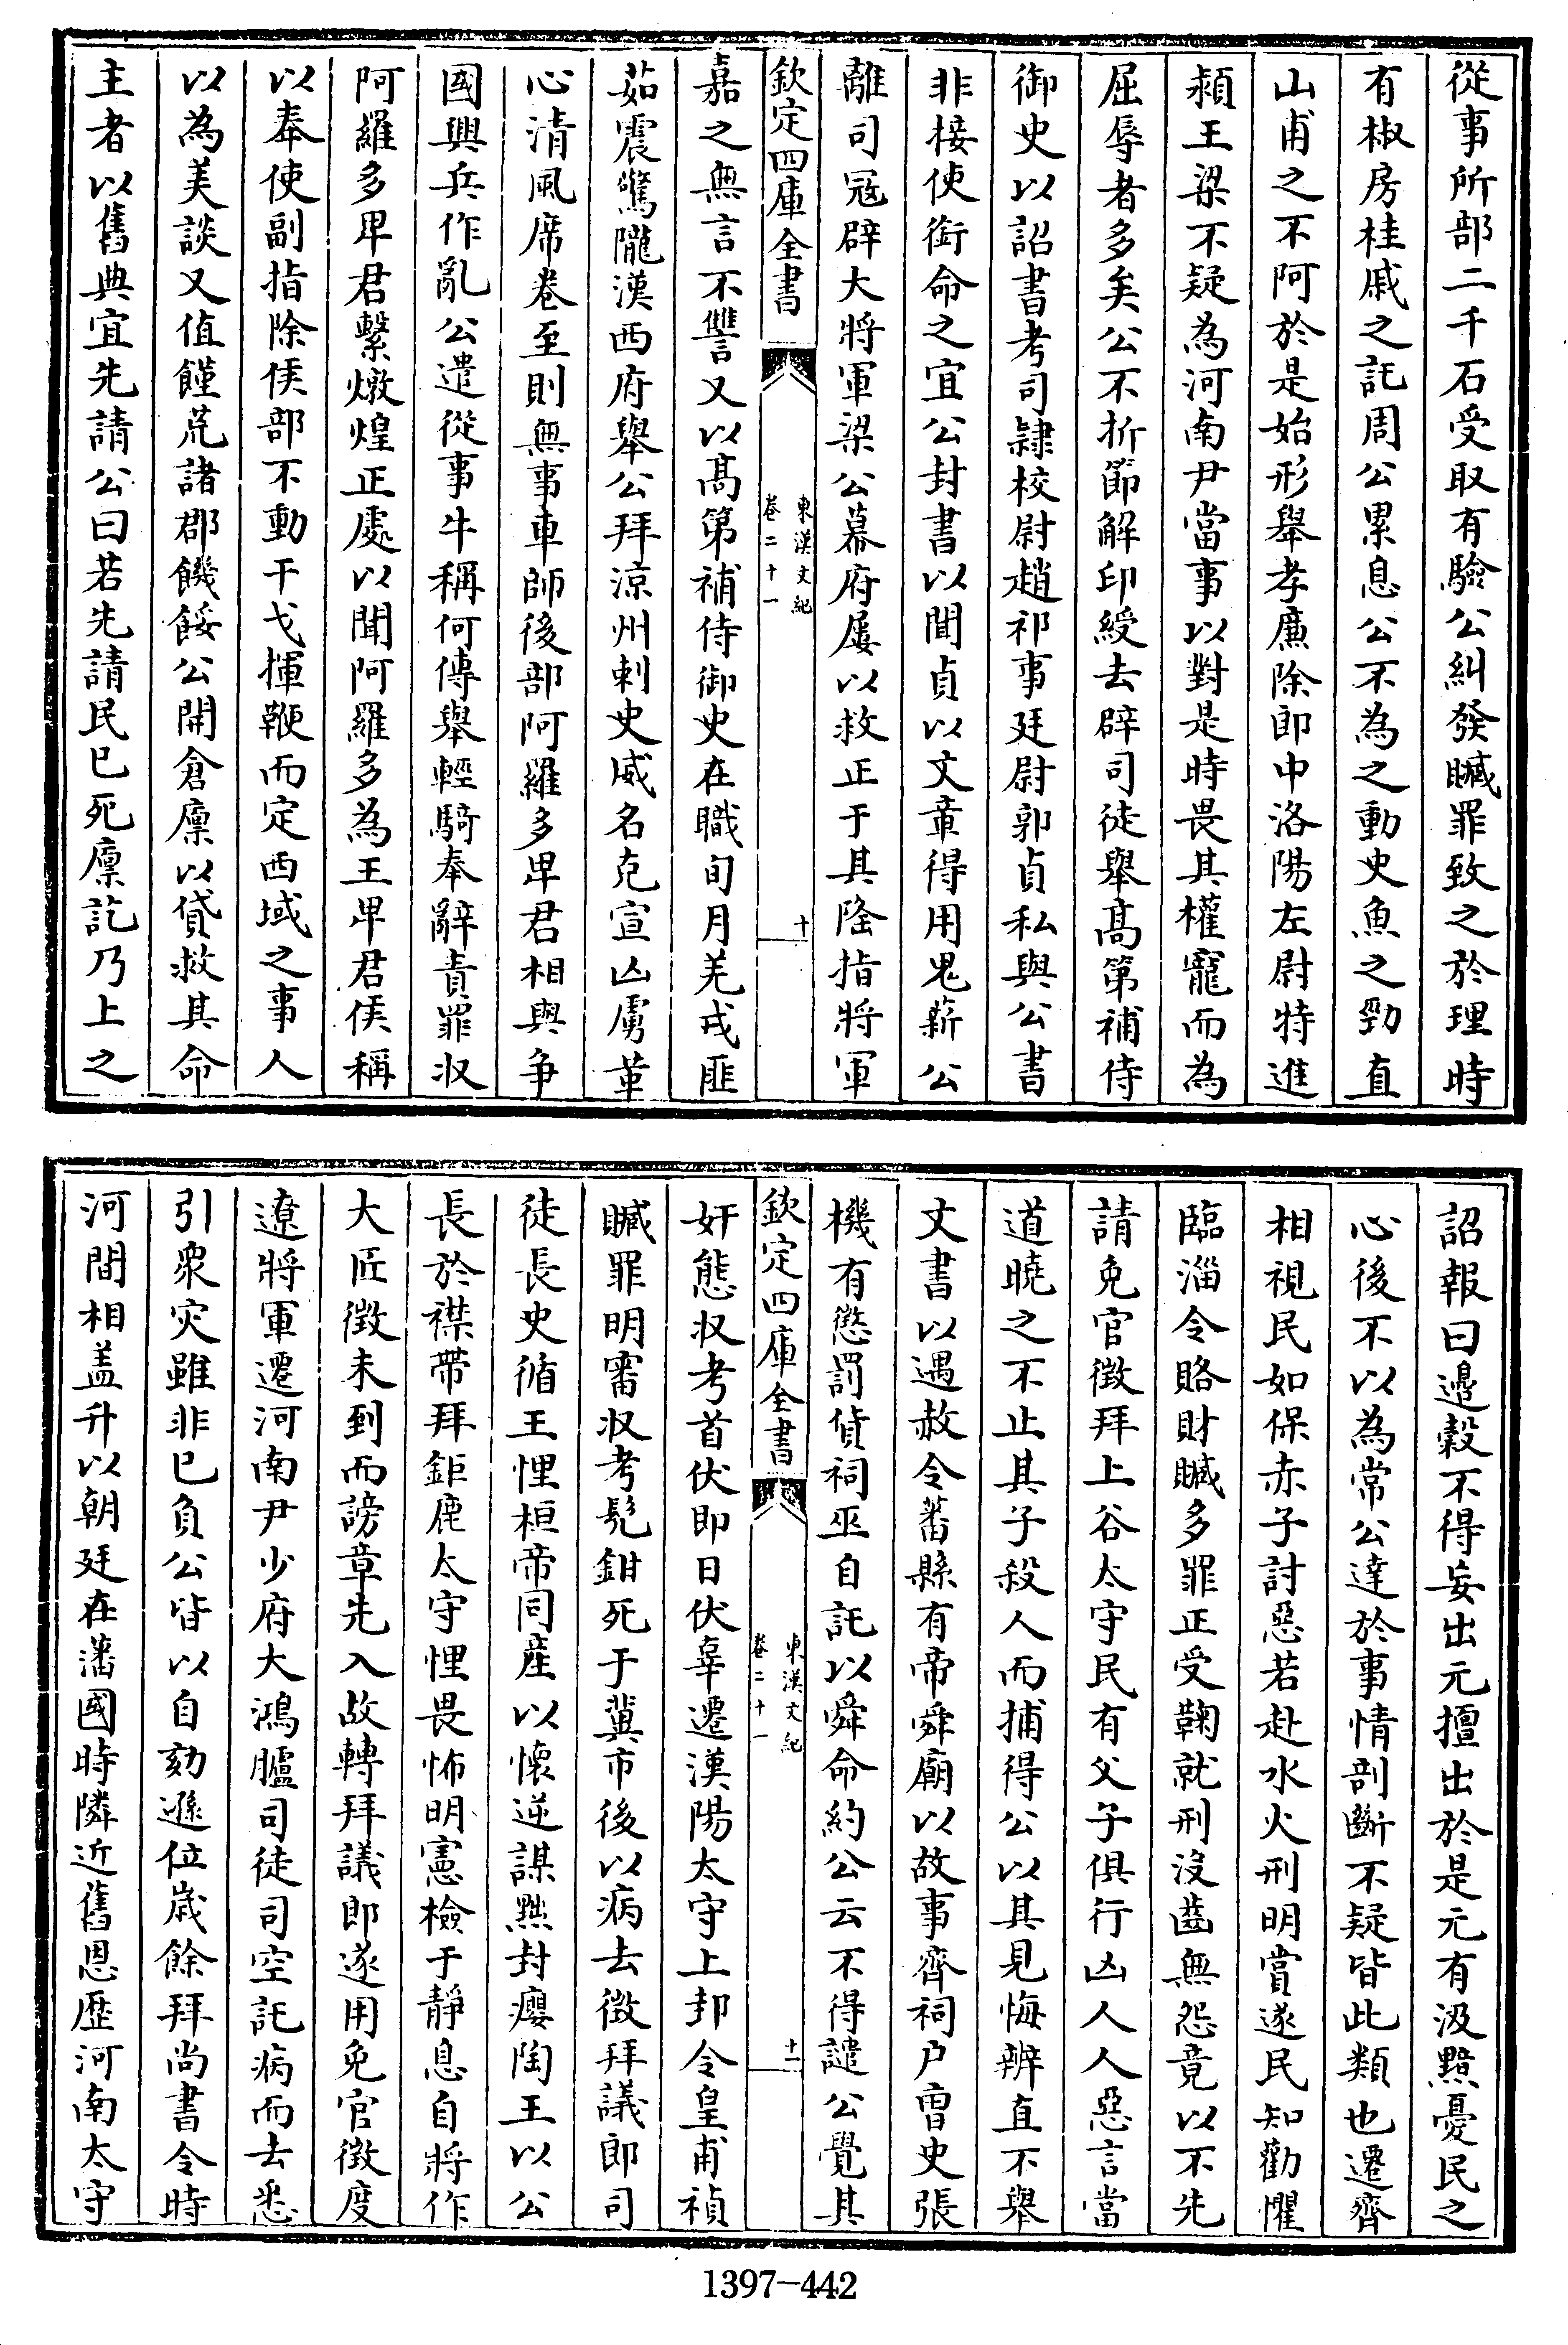 從事所部二千石受取有驗公糾發贓罪致之於理時
有椒房桂戚之託周公累息公不為之動史魚之勁直
山甫之不阿於是始形舉孝廉除郎中洛陽左尉特進
潁王梁不疑為河南尹當事以對是時畏其權寵而為
屈辱者多矣公不折節解印綬去辟司徒舉高第補侍
御史以詔書考司隷校尉趙祁事廷尉郭貞私與公書
非接使銜命之宜公封書以聞貞以文章得用鬼薪公
離司冦辟大將軍梁公幕府屢以救正于其隆指將軍
欽定四庫全書
東漢文紀
卷二十一
十
嘉之無言不讐又以高第補侍御史在職旬月羌戎匪
茹震驚隴漢西府舉公拜涼州刺史威名克宣凶虜革
心清風席卷至則無事車師後部阿羅多卑君相與争
國興兵作亂公遣從事牛稱何傳舉輕騎奉辭責罪収
阿羅多卑君繫燉煌正處以聞阿羅多為王卑君侯稱
以奉使副指除侯部不動干戈揮鞭而定西域之事人
以為美談又值饉荒諸郡饑餒公開倉廩以貸救其命
主者以舊典宜先請公曰若先請民已死廩訖乃上之
詔報曰邉穀不得妄出元擅出於是元有汲黯憂民之
心後不以為常公達於事情剖斷不疑皆此類也遷齊
相視民如保赤子討惡若赴水火刑明賞遂民知勸懼
臨淄令賂財贓多罪正受鞫就刑沒齒無怨竟以不先
請免官徵拜上谷太守民有父子俱行凶人人惡言當
道曉之不止其子殺人而捕得公以其見悔辨直不舉
文書以遇赦令蕃縣有帝舜廟以故事齊祠户曹史張
機有懲罰貨祠巫自託以舜命約公云不得譴公覺其
欽定四庫全書
東漢文紀
卷二十一
十一
奸態収考首伏即日伏辜遷漢陽太守上邽令皇甫禎
贓罪明審収考髠鉗死于冀市後以病去徵拜議郎司
徒長史循王悝桓帝同産以懷逆謀黜封癭陶王以公
長於襟帶拜鉅鹿太守悝畏怖明憲檢于靜息自將作
大匠徵未到而謗章先入故轉拜議郎遂用免官徵度
遼將軍遷河南尹少府大鴻臚司徒司空託病而去悉
引衆灾雖非已負公皆以自劾遜位嵗餘拜尚書令時
河間相盖升以朝廷在藩國時隣近舊恩歴河南太守
1397-442